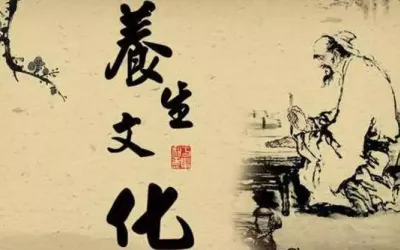 養生文化